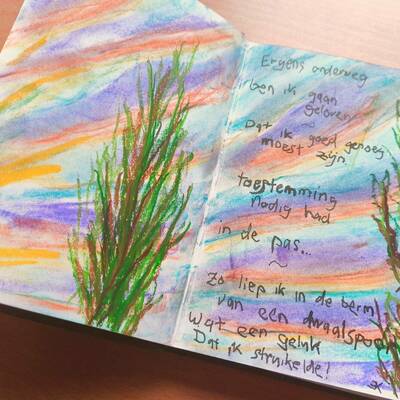 Ergens onderweg
ben ik gaan
geloven
~
Dat ik goed genoeg
moest zijn.
toestemming
nodig had
in de pas...
~
Zo liep ik in de berm
van een dwaalspoor
wat een geluk
Dat ik struikelde!